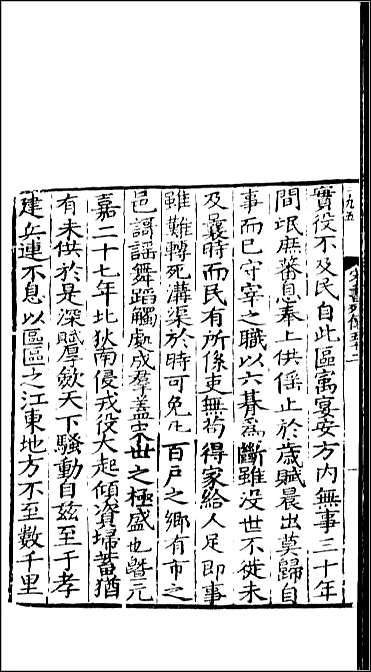 實役不及民自此區寓宴安方内無事三十年
間氓庶蕃息奉上供徭止於歲賦晨出莫歸自
事而已守宰之職以六朞爲斷雖没世不徙未
及曩時而民有所係吏無苟得家給人足即事
雖難轉死溝渠於時可免凢百戸之鄉有市之
邑謌謡舞蹈觸處成羣蓋宋世之極盛也曁元
嘉二十七年北狄南侵戎役大起傾資埽蓄猶
有未供於是深賦厚斂天下騷動自玆至于孝
建兵連不息以區區之江東地方不至數千里